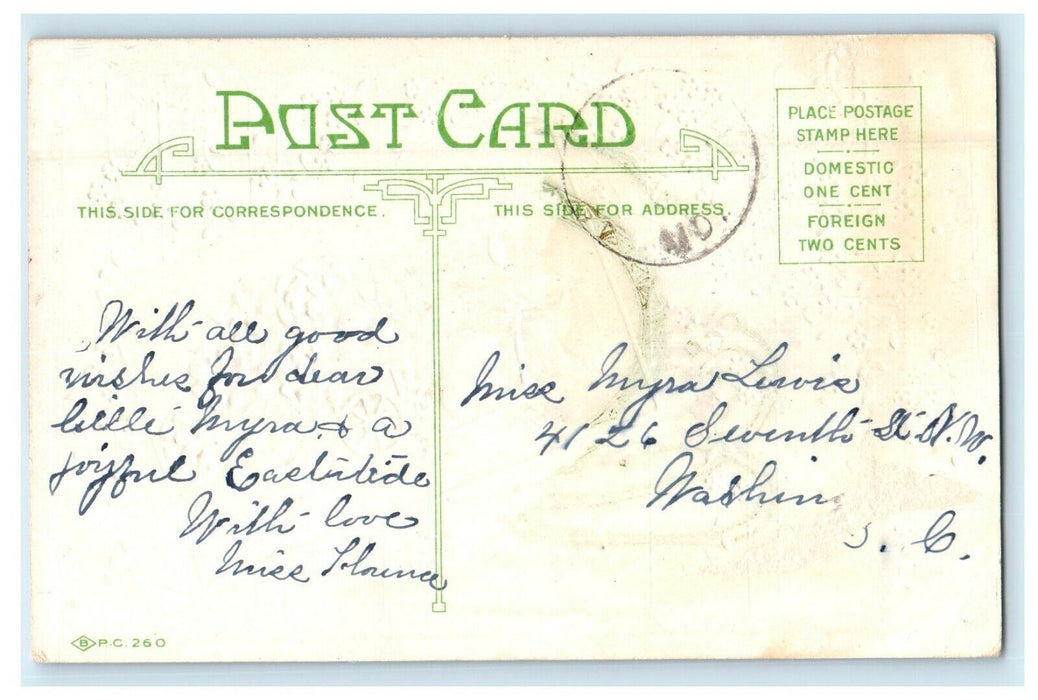 POST CARD
THIS SIDE FOR CORRESPONDENCE.
THIS SIDE FOR ADDRESS
PLACE POSTAGE
STAMP HERE
DOMESTIC
ONE CENT
FOREIGN
TWO CENTS
MO.
With all good
wishes for dear
little Myra & a
joyful Eastertide
With love
Miss Florence
Miss Myra Lewis
4126 Seventh St N.W.
Washin
. C.
B P.C. 260